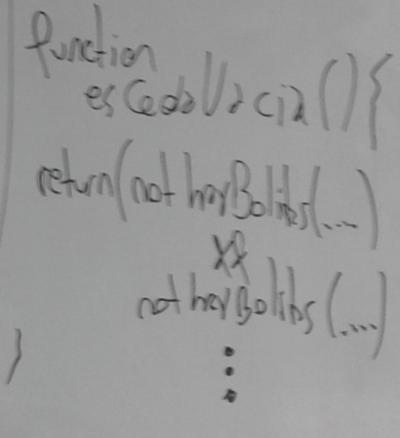 function
esCeldaVacia(){
return(not hayBolitas(...)
&&
not hayBolitas(....)
}